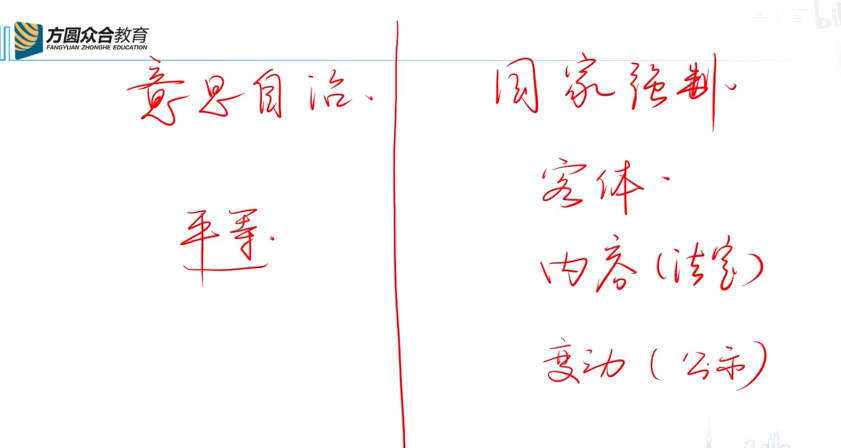 方圆众合教育
FANGYUAN ZHONGHE EDUCATION
意思自治.
平等.
国家强制.
客体.
内容(法定)
变动(公示)